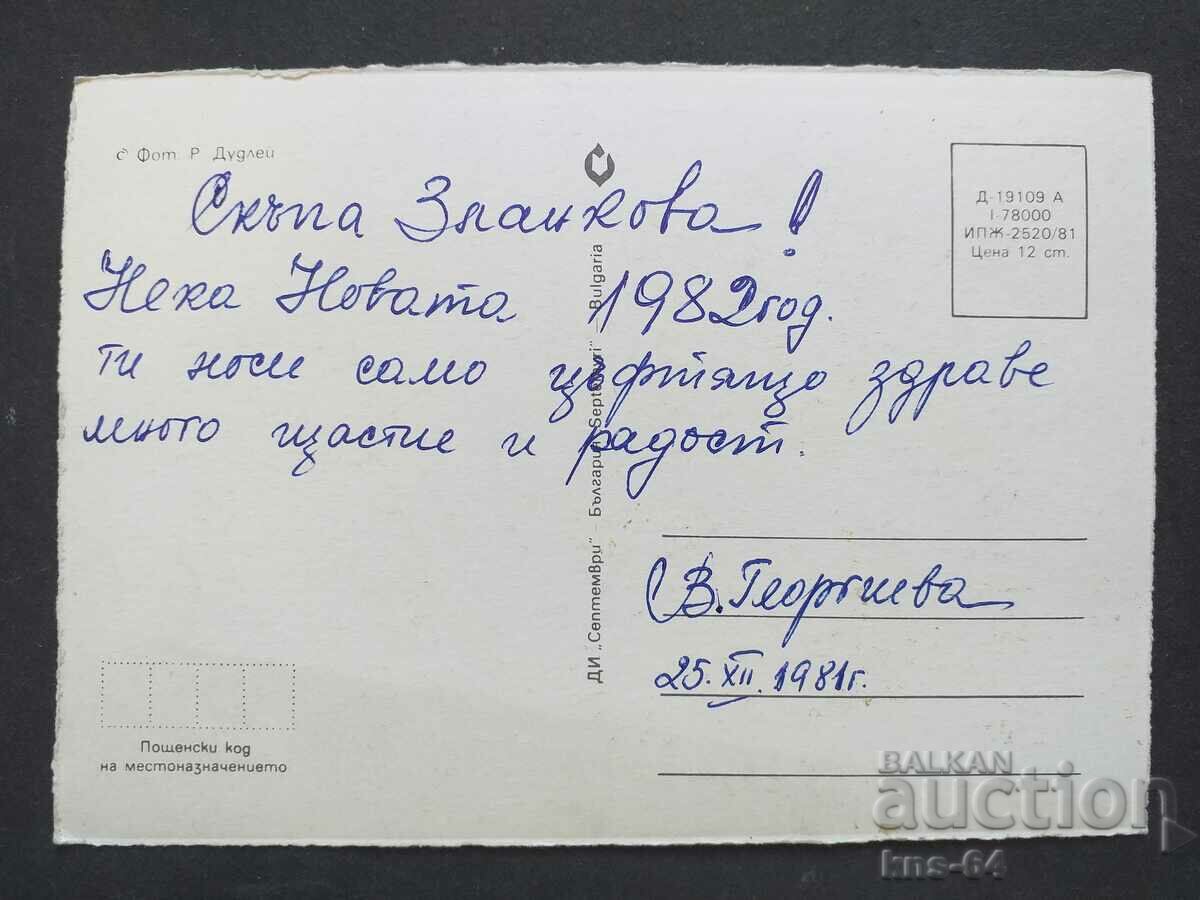 © Фот. Р. Дудлей
Д-19109 А
I-78000
ИПЖ-2520/81
Цена 12 ст.
Скъпа Златкова!
Нека Новата 1982 год.
ти носи само цъфтящо здраве
много щастие и радост.
ДИ „Септември" – България „Septemvri" – Bulgaria
В. Георгиева
25.XII.1981г.
Пощенски код
на местоназначението
BALKAN
auction
kns-64